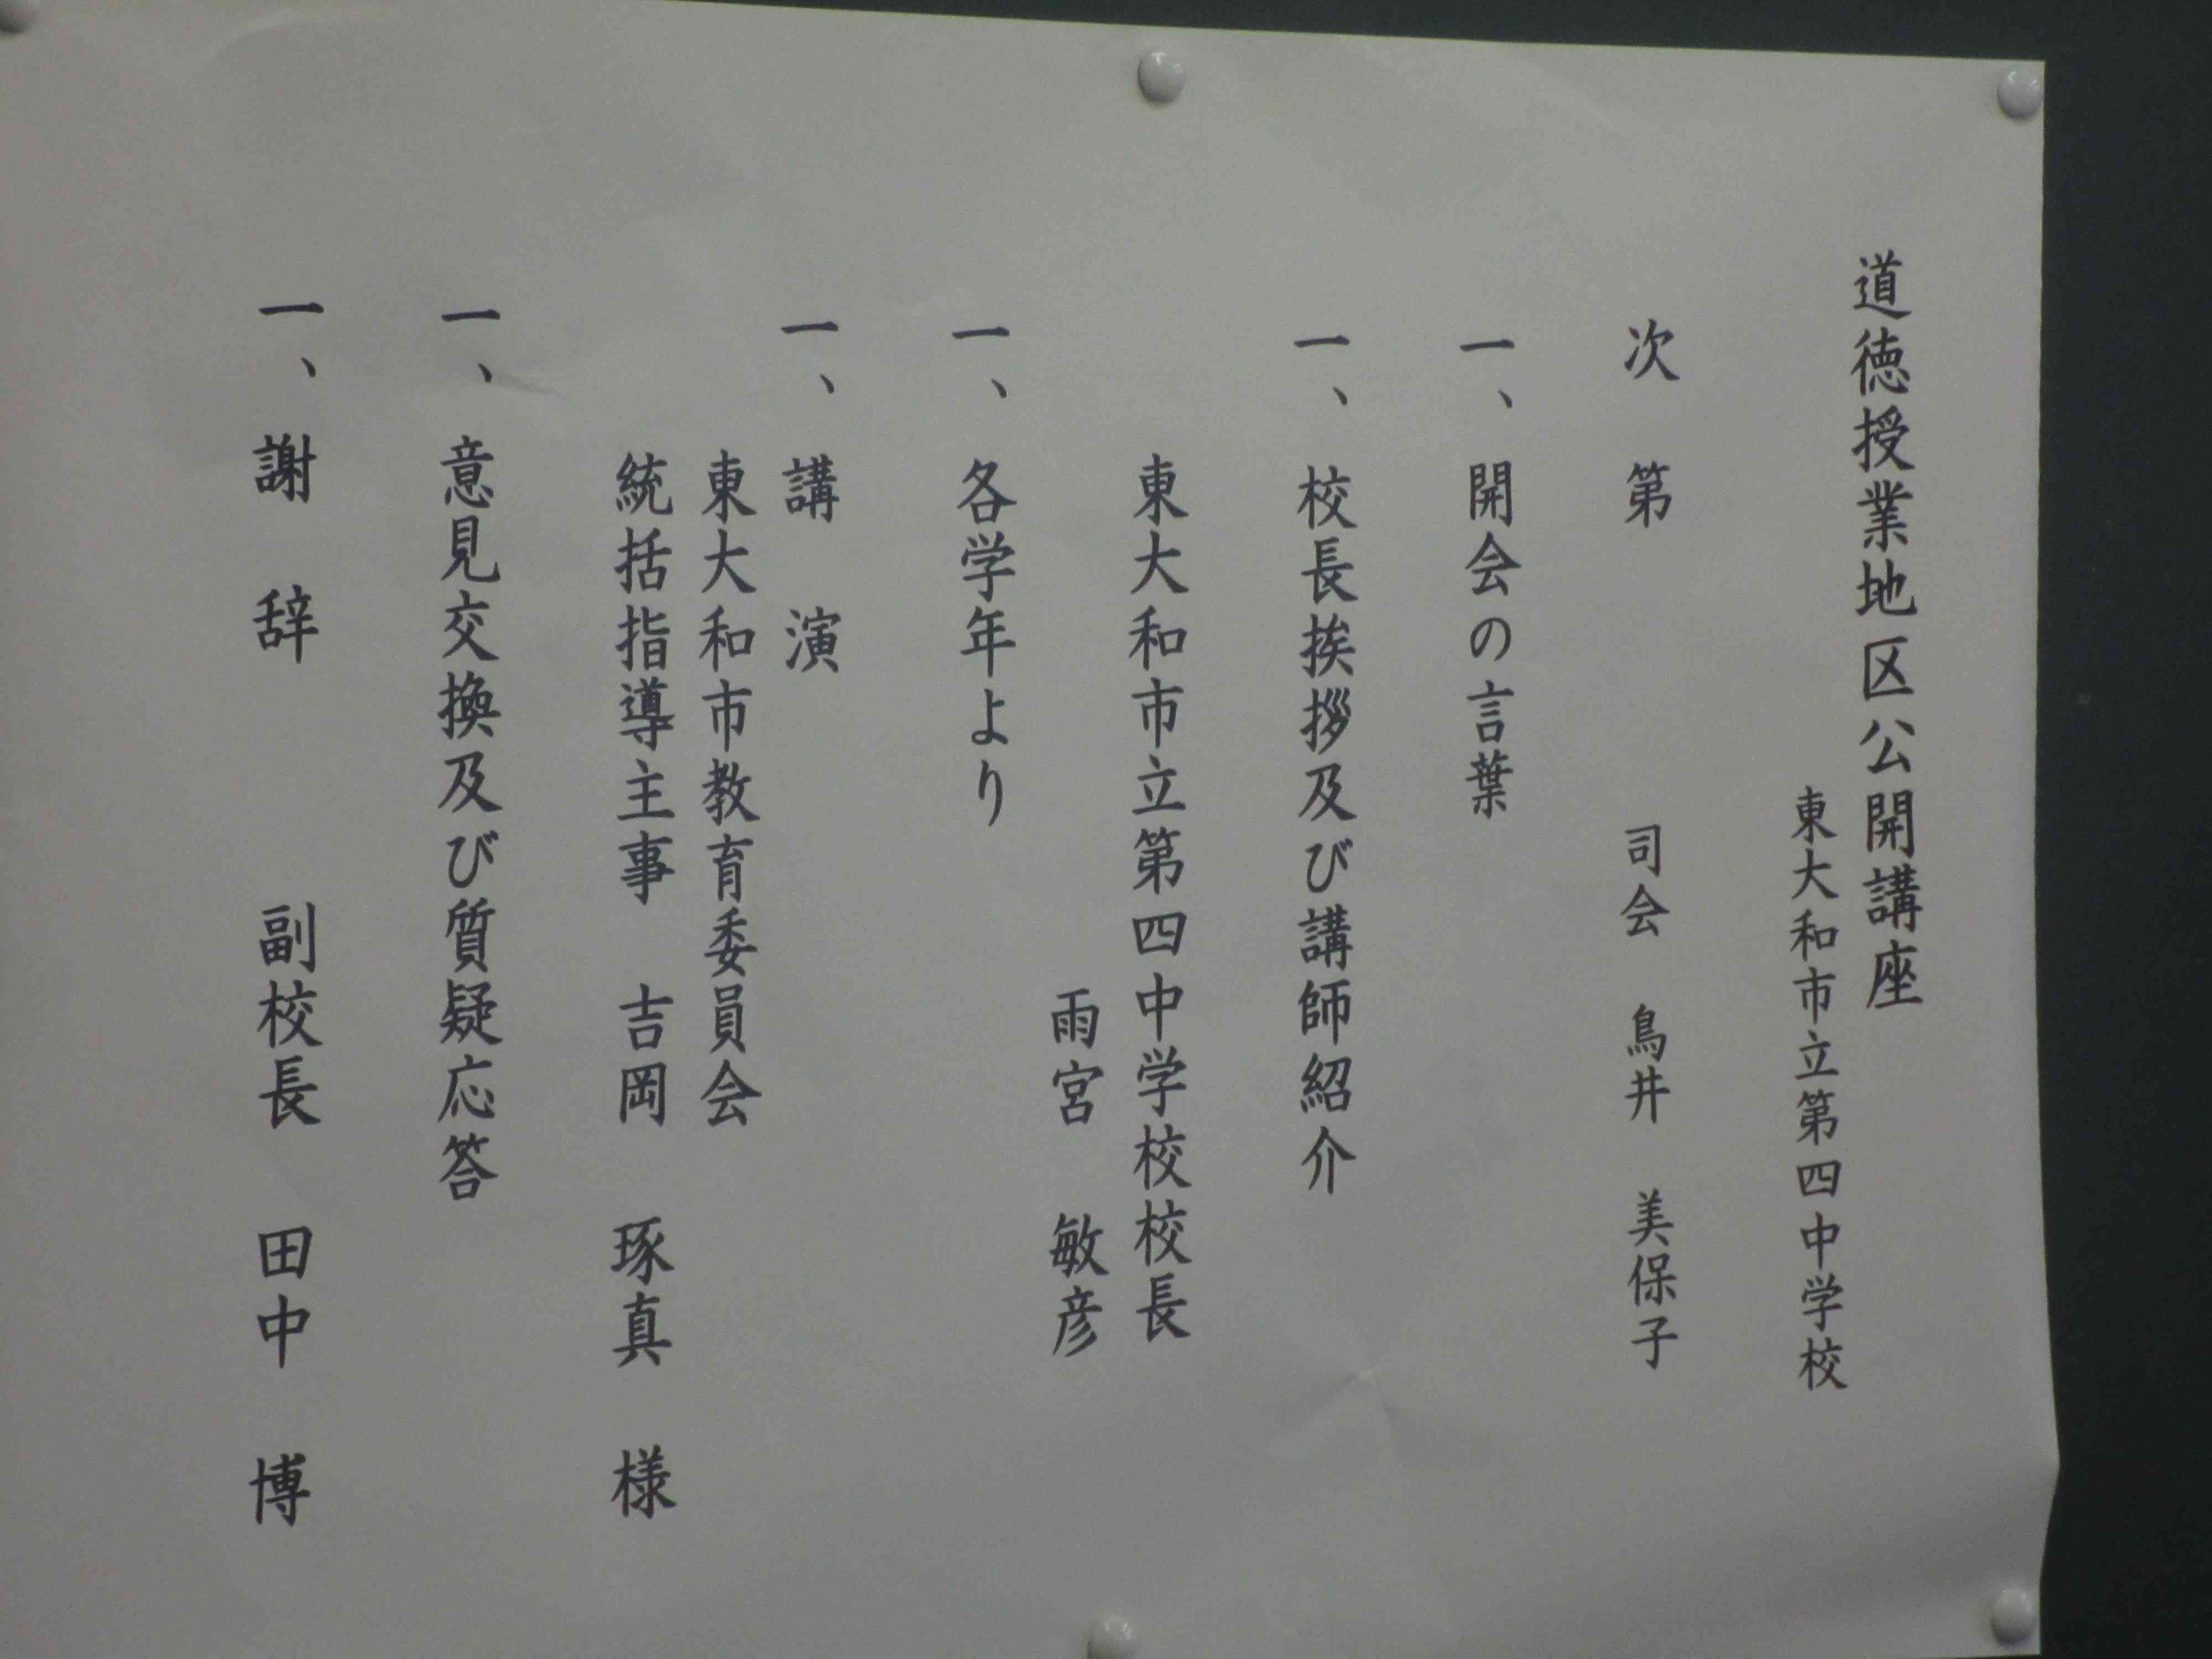 道徳授業地区公開講座
東大和市立第四中学校
次 第 司会 鳥井 美保子
一、開会の言葉
一、校長挨拶及び講師紹介
東大和市立第四中学校校長
雨宮 敏彦
一、各学年より
一、講 演
東大和市教育委員会
統括指導主事 吉岡 琢真 様
一、意見交換及び質疑応答
一、謝 辞 副校長 田中 博